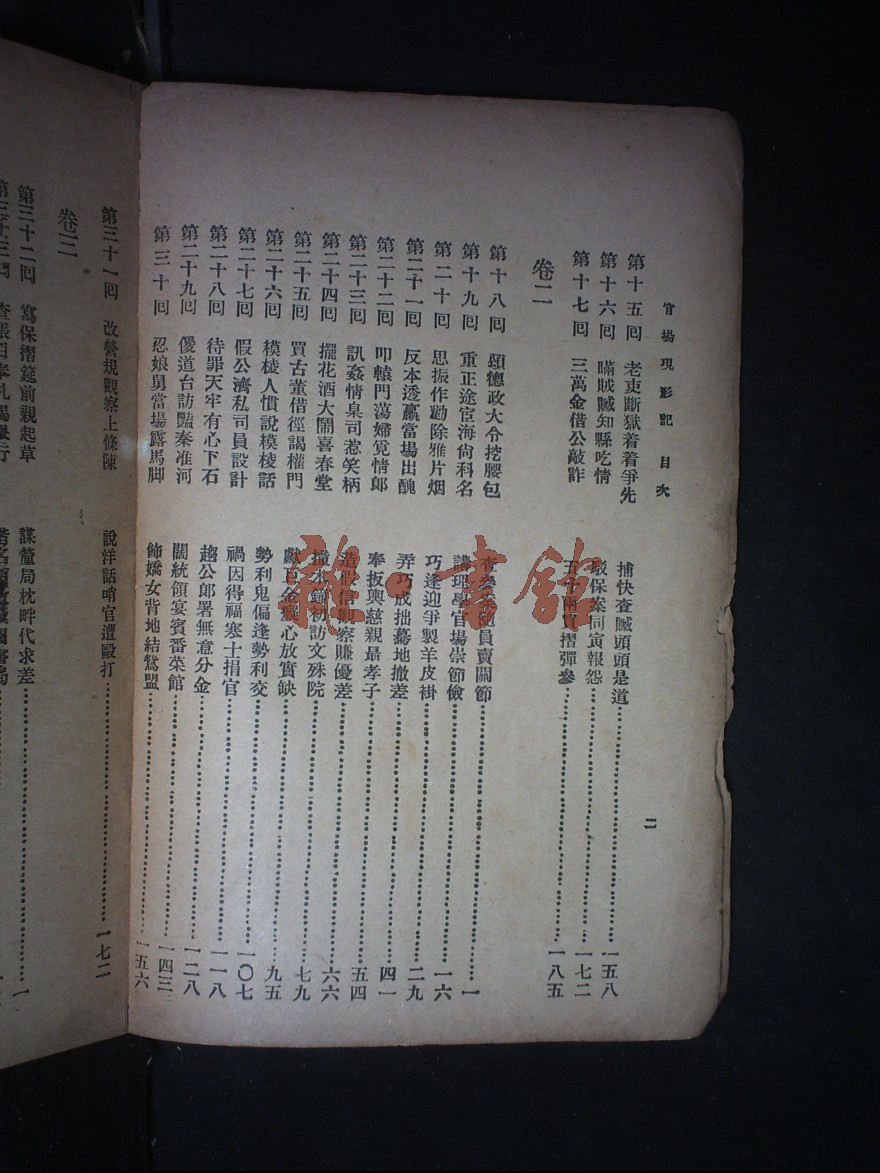 官場現形記 目次
二
第十五回 老吏斷獄着着爭先 捕快查贓頭頭是道 一五八
第十六回 瞞賊贓知縣吃情 駁保案同寅報怨 一七二
第十七回 三萬金借公敲詐 五十兩買摺彈參 一八五
卷二
第十八回 頌德政大令挖腰包 查參案隨員賣關節 一
第十九回 重正途宦海尙科名 講理學官場崇節儉 一六
第二十回 思振作勸除雅片烟 巧逢迎爭製羊皮褂 二九
第二十一回 反本透贏當場出醜 弄巧成拙驀地撤差 四一
第二十二回 叩轅門蕩婦覓情郎 奉板輿慈親勗孝子 五四
第二十三回 訊姦情臬司惹笑柄 造假信觀察賺優差 六六
第二十四回 擺花酒大鬧喜春堂 撞木鐘初訪文殊院 七九
第二十五回 買古董借徑謁權門 獻巨金癡心放實缺 九五
第二十六回 模棱人慣說模棱話 勢利鬼偏逢勢利交 一〇七
第二十七回 假公濟私司員設計 禍因得福寒士捐官 一一八
第二十八回 待罪天牢有心下石 趨公郎署無意分金 一二八
第二十九回 傻道台訪豔秦淮河 闊統領宴賓番菜館 一四三
第三十回 忍娘舅當場露馬脚 飾嬌女背地結鴛盟 一五六
第三十一回 改營規觀察上條陳 說洋話哨官遭毆打 一七二
卷三
第三十二回 寫保摺筵前親起草 謀釐局枕畔代求差 一
雅·書館